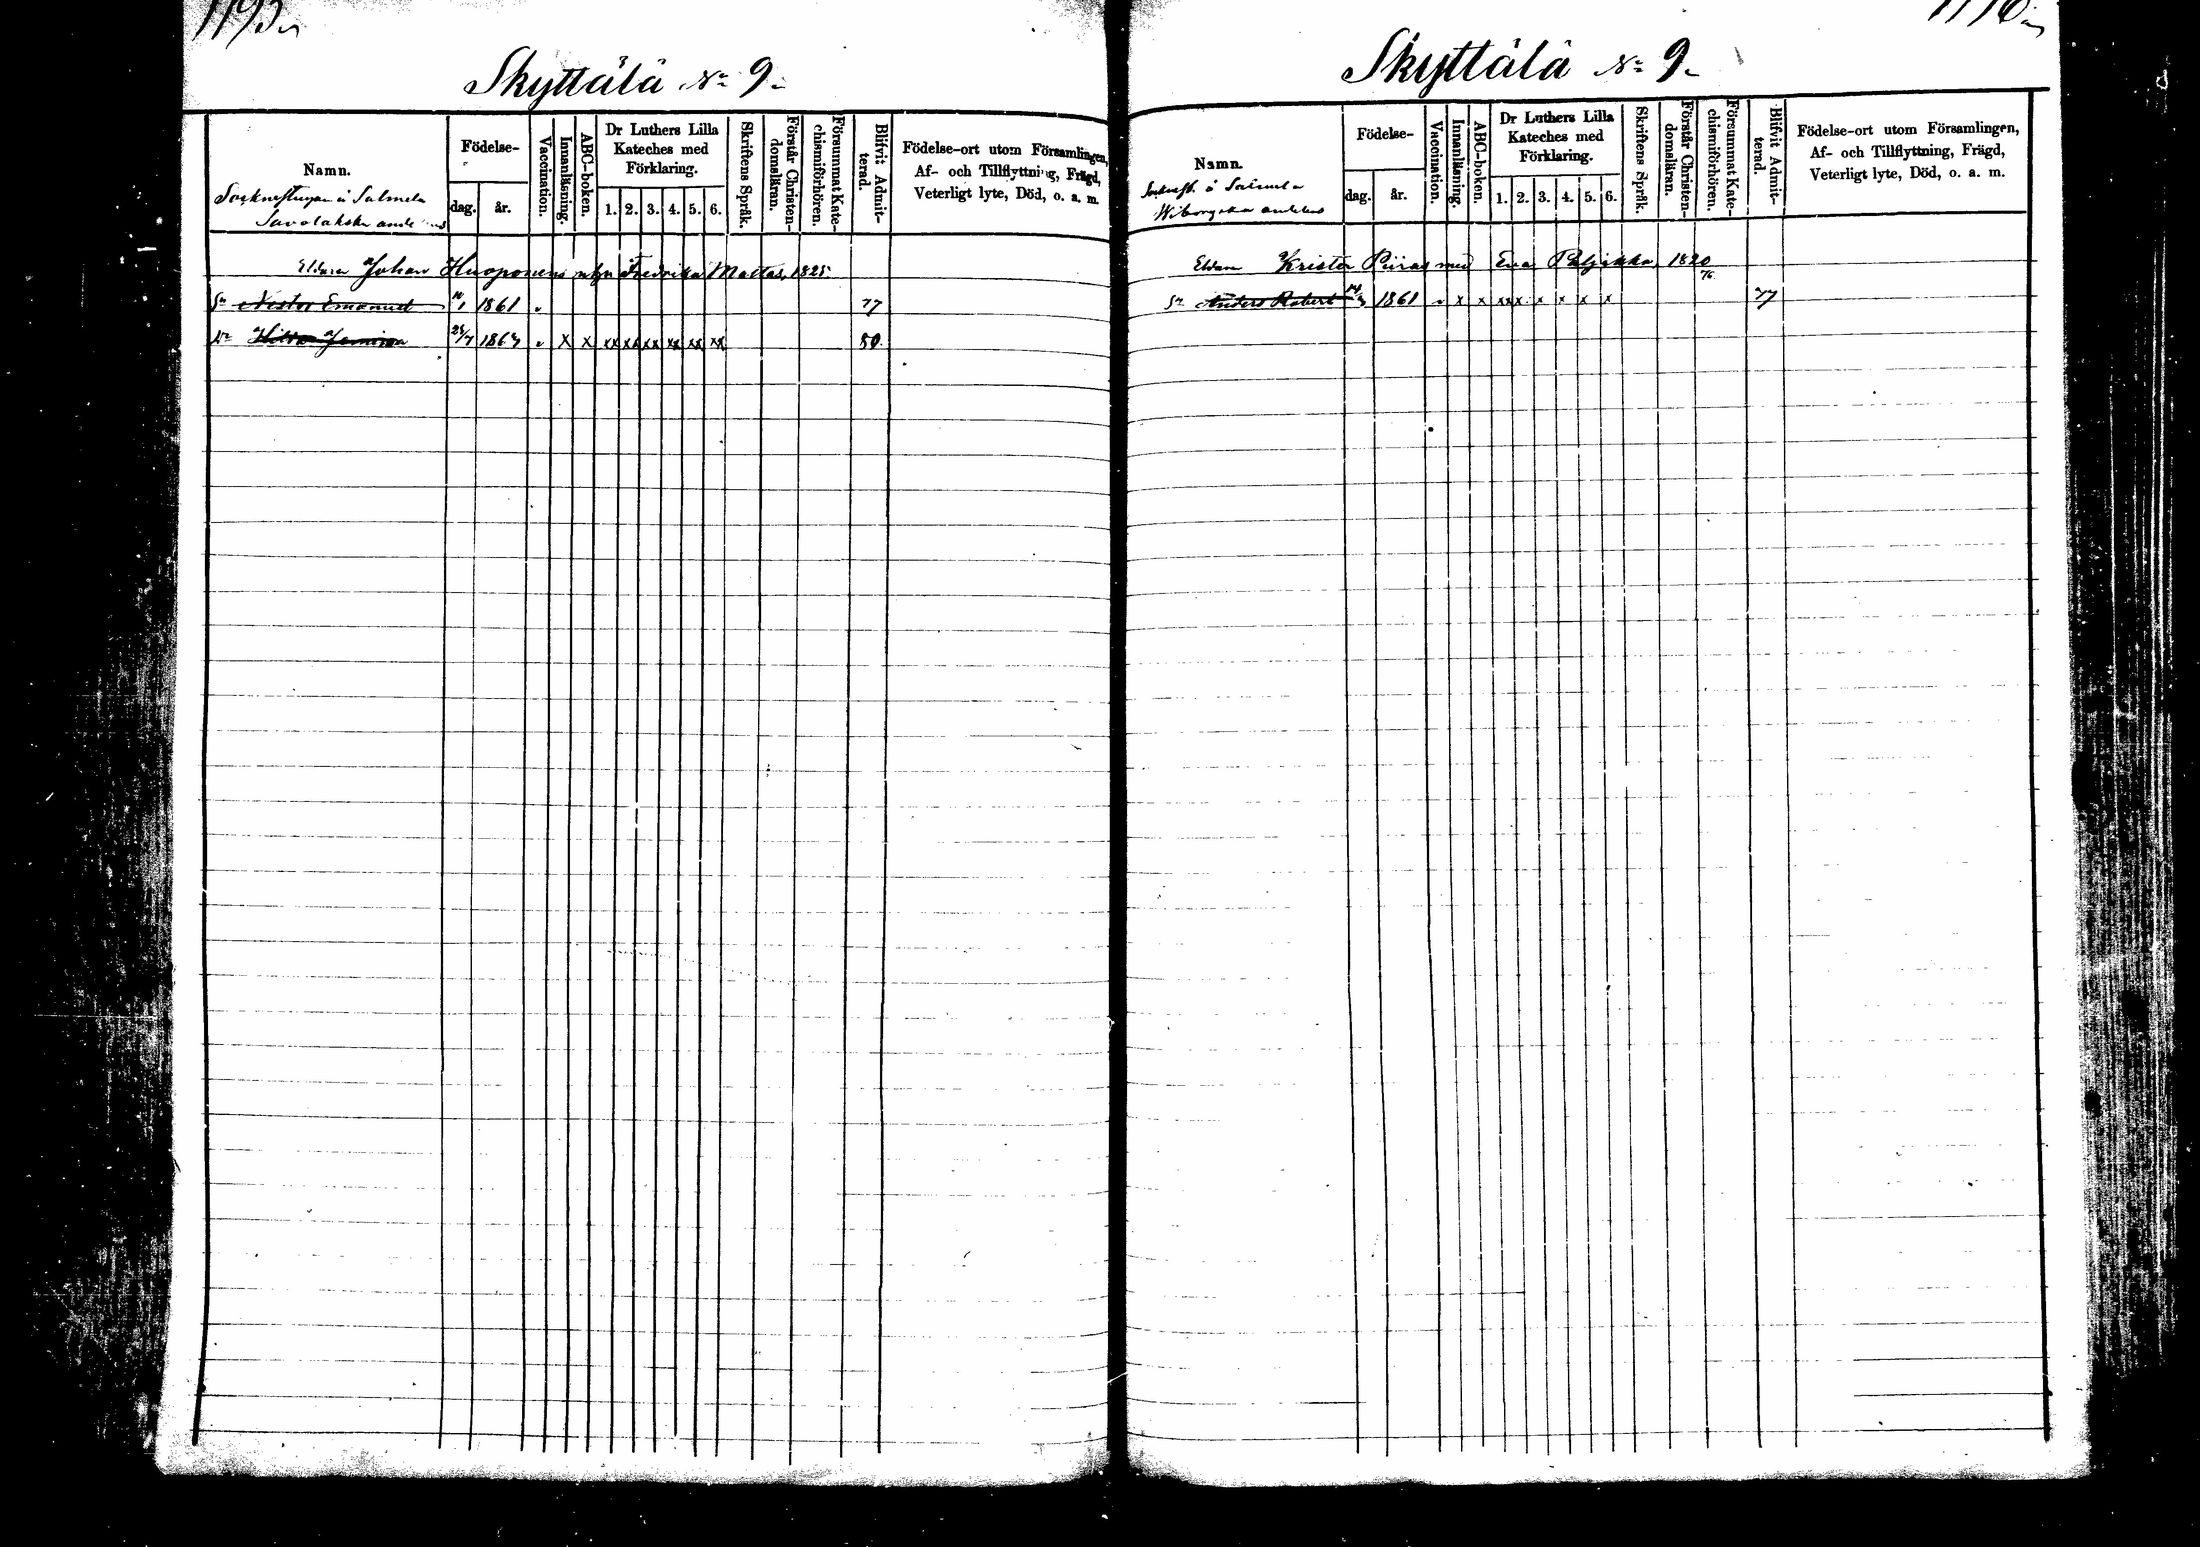 Skyttälä № 9.
Namn.
Salmela
Savolakska
Födelse-
dag.
år.
Vaccination.
Innanläsning.
ABC-boken.
Dr Luthers Lilla
Kateches med
Förklaring.
1. 2. 3. 4. 5. 6.
Skriftens Språk.
Förstår Christen-
domsläran.
Försummat Kate-
chismiförhören.
Blifvit Admit-
terad.
Födelse-ort utom Församlingen,
Af- och Tillflyttning, Frägd,
Veterligt lyte, Död, o. a. m.
Johan Huoponens Fredrika Mattas, 1825.
Sn Nestor Emanuel 1861 77
Dr 28/7 1863 x x xx xx xx xx xx xx 80.
Skyttälä № 9.
Namn.
Salmela
Wiborgska
Födelse-
dag.
år.
Vaccination.
Innanläsning.
ABC-boken.
Dr Luthers Lilla
Kateches med
Förklaring.
1. 2. 3. 4. 5. 6.
Skriftens Språk.
Förstår Christen-
domsläran.
Försummat Kate-
chismiförhören.
Blifvit Admit-
terad.
Födelse-ort utom Församlingen,
Af- och Tillflyttning, Frägd,
Veterligt lyte, Död, o. a. m.
Krister Piiras med Eva 1820
Sn Anders Robert 1861 x x xxx x x x x 77